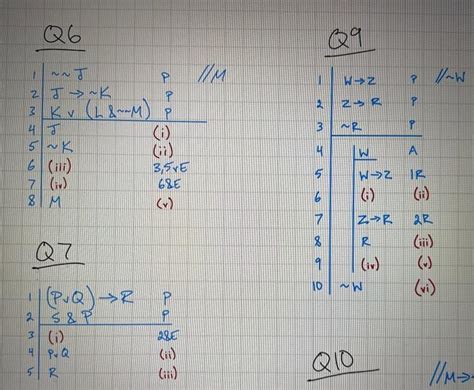 Q6
1 ~~J P //M
2 J → ~K P
3 K v (L & ~~M) P
4 J (i)
5 ~K (ii)
6 (iii) 3,5vE
7 (iv) 6&E
8 M (v)
Q7
1 (PvQ) → R P
2 S & P P
3 (i) 2&E
4 PvQ (ii)
5 R (iii)
Q9
1 W→Z P //~W
2 Z→R P
3 ~R P
4 W A
5 W→Z 1R
6 (i) (ii)
7 Z→R 2R
8 R (iii)
9 (iv) (v)
10 ~W (vi)
Q10
//M→